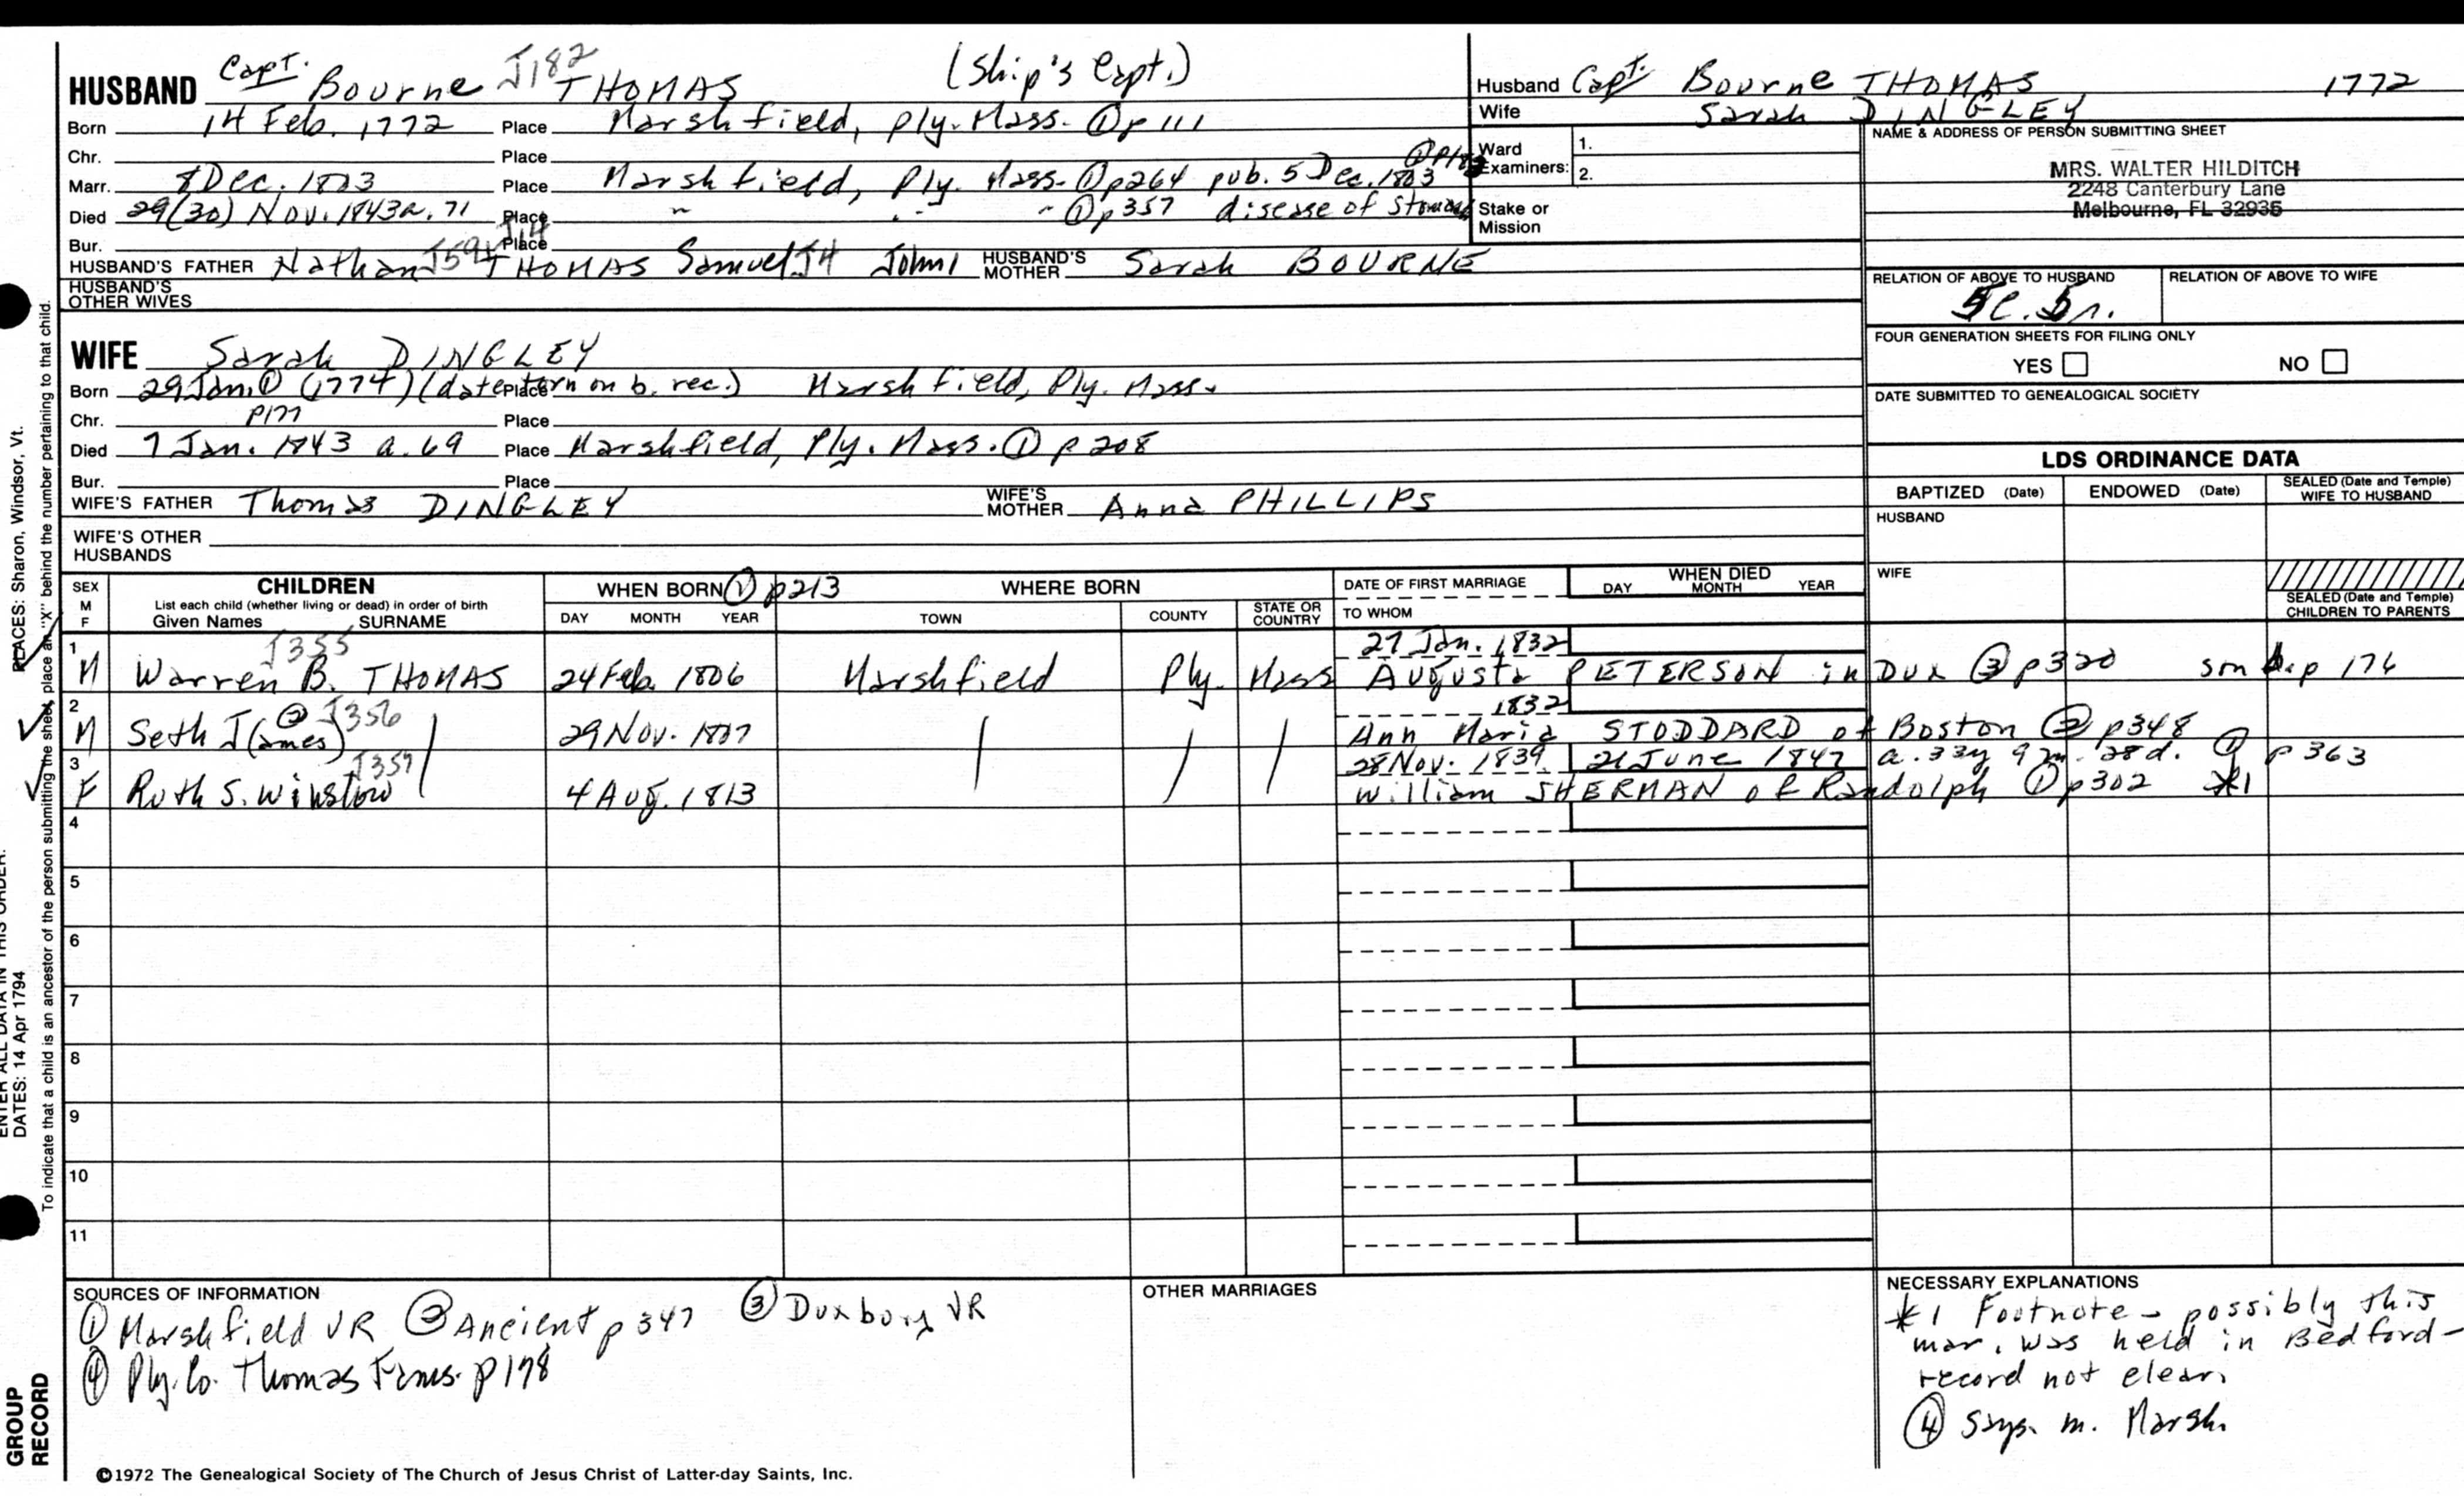 HUSBAND Capt. Bourne J182 THOMAS (Ship's Capt.)
Born 14 Feb. 1772 Place Marshfield, Ply. Mass. ① p 111
Chr. Place
Marr. 8 Dec. 1803 Place Marshfield, Ply. Mass. ① p264 pub. 5 Dec. 1803
Died 29(30) Nov. 1843 a. 71 Place " " " ① p357 disease of stomach
Bur. Place
HUSBAND'S FATHER Nathan J59 THOMAS Samuel J4 John1 HUSBAND'S MOTHER Sarah BOURNE
HUSBAND'S OTHER WIVES
WIFE Sarah DINGLEY
Born 29 Jan. ① (1774) (date torn on b. rec.) Place Marshfield, Ply. Mass.
Chr. p177 Place
Died 7 Jan. 1843 a. 69 Place Marshfield, Ply. Mass. ① p 208
Bur. Place
WIFE'S FATHER Thomas DINGLEY WIFE'S MOTHER Anna PHILLIPS
WIFE'S OTHER HUSBANDS
Husband Capt. Bourne THOMAS 1772
Wife Sarah DINGLEY
Ward Examiners: 1.
2.
Stake or Mission
NAME & ADDRESS OF PERSON SUBMITTING SHEET
MRS. WALTER HILDITCH
2248 Canterbury Lane
Melbourne, FL 32935
RELATION OF ABOVE TO HUSBAND RELATION OF ABOVE TO WIFE
FOUR GENERATION SHEETS FOR FILING ONLY
YES NO
DATE SUBMITTED TO GENEALOGICAL SOCIETY
LDS ORDINANCE DATA
BAPTIZED (Date) ENDOWED (Date) SEALED (Date and Temple) WIFE TO HUSBAND
HUSBAND
WIFE
SEALED (Date and Temple) CHILDREN TO PARENTS
SEX M F CHILDREN List each child (whether living or dead) in order of birth Given Names SURNAME
WHEN BORN ① p213 DAY MONTH YEAR
WHERE BORN TOWN COUNTY STATE OR COUNTRY
DATE OF FIRST MARRIAGE TO WHOM
WHEN DIED DAY MONTH YEAR
1 J355 27 Jan. 1832
M Warren B. THOMAS 24 Feb. 1806 Marshfield Ply. Mass Augusta PETERSON in Dux ③ p320 p 176
2 ② J356 1832
M Seth J(ames) 29 Nov. 1807 Ann Maria STODDARD of Boston ② p348
3 28 Nov. 1839 21 June 1847 a. 33y 9m. 28d. ① p 363
F Ruth S. Winslow 4 Aug. 1813 William SHERMAN of Randolph ① p302 *1
4
5
6
7
8
9
10
11
SOURCES OF INFORMATION
① Marshfield VR ② Ancient p 347 ③ Duxbury VR
④ Ply. Co. Thomas Fams. p178
OTHER MARRIAGES
NECESSARY EXPLANATIONS
*1 Footnote - possibly this
mar. was held in Bedford -
record not clear.
④ Says m. Marsh.
©1972 The Genealogical Society of The Church of Jesus Christ of Latter-day Saints, Inc.
PLACES: Sharon, Windsor, Vt.
ENTER ALL DATA IN THIS ORDER:
DATES: 14 Apr 1794
To indicate that a child is an ancestor of the person submitting the sheet, place an "X" behind the number pertaining to that child.
GROUP
RECORD